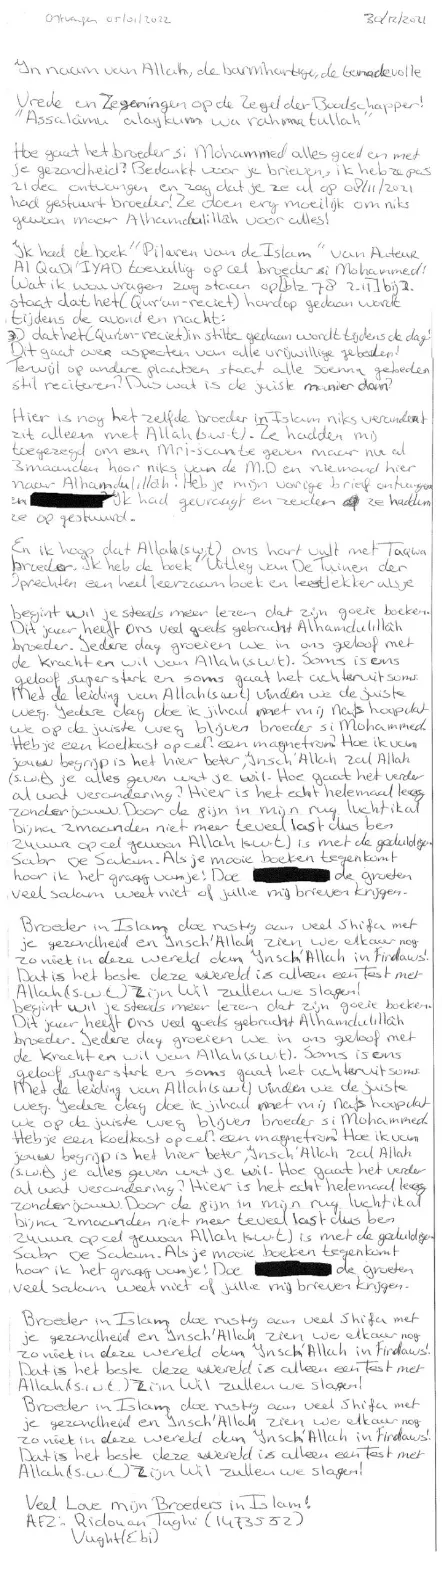 Ontvangen 05/01/2022 30/12/2021
In naam van Allah, de barmhartige, de genadevolle
Vrede en Zegeningen op de Zegel der Boodschapper!
"Assalāmu alaykum wa rahmatullah"
Hoe gaat het broeder si Mohammed alles goed en met
je gezondheid? Bedankt voor je brieven, ik heb ze pas
21 dec ontvangen en zag dat je ze al op 08/11/2021
had gestuurt broeder! Ze doen erg moeilijk om niks
gewoon maar Alhamdulillāh voor alles!
Ik had de boek "Pilaren van de Islam" van Auteur
Al QaDi 'IYAD toevallig op cel broeder si Mohammed!
Wat ik wou vragen zag staan op [blz 78 2.11] bij 2.
staat dat het (Qur'an-reciet) hardop gedaan wordt
tijdens de avond en nacht:
3) dat het (Qur'an-reciet) in stilte gedaan wordt tijdens de dag!
Dit gaat over aspecten van alle vrijwillige gebeden!
Terwijl op andere plaatsen staat alle soenna gebeden
stil reciteren? Dus wat is de juiste manier dan?
Hier is nog het zelfde broeder in Islam niks verandert
zit alleen met Allah (s.w.t). Ze hadden mij
toegezegd om een Mri-scante geven maar nu al
3 maanden hoor niks van de M.D en niemand hier
maar Alhamdulillāh! Heb je mijn vorige brief ontvangen
en Ik had gevraagt en zeiden ze hadden
ze op gestuurd.
En ik hoop dat Allah (s.w.t) ons hart vult met Taqwa
broeder. Ik heb de boek "Uitleg van De Tuinen der
Oprechten een heel leerzaam boek en leest lekker als je
begint wil je steeds meer lezen dat zijn goeie boeken.
Dit jaar heeft ons veel goeds gebracht Alhamdulillāh
broeder. Iedere dag groeien we in ons geloof met
de Kracht en wil van Allah (s.w.t). Soms is ons
geloof super sterk en soms gaat het achteruit soms.
Met de leiding van Allah (s.w.t) vinden we de juiste
weg. Iedere dag doe ik jihad met mij Nafs hoop dat
we op de juiste weg blijven broeder si Mohammed.
Heb je een koelkast op cel? een magnetron? Hoe ik van
jouw begrijp is het hier beter, Insch'Allah zal Allah
(s.w.t) je alles geven wat je wil. Hoe gaat het verder
al wat verandering? Hier is het echt helemaal leeg
zonder jouw. Door de pijn in mijn rug lucht ik al
bijna 2 maanden niet meer teveel last dus ben
24 uur op cel gewoon Allah (s.w.t) is met de geduldigen.
Sabr De Salam. Als je mooie boeken tegenkomt
hoor ik het graag van je! Doe de groeten
veel salam weet niet of jullie mij brieven krijgen.
Broeder in Islam doe rustig aan veel Shifa met
je gezondheid en Insch'Allah zien we elkaar nog
zo niet in deze wereld dan Insch'Allah in Firdaws!
Dat is het beste deze wereld is alleen een Test met
Allah (s.w.t) Zijn Wil zullen we slagen!
begint wil je steeds meer lezen dat zijn goeie boeken.
Dit jaar heeft ons veel goeds gebracht Alhamdulillāh
broeder. Iedere dag groeien we in ons geloof met
de Kracht en wil van Allah (s.w.t). Soms is ons
geloof super sterk en soms gaat het achteruit soms.
Met de leiding van Allah (s.w.t) vinden we de juiste
weg. Iedere dag doe ik jihad met mij Nafs hoop dat
we op de juiste weg blijven broeder si Mohammed.
Heb je een koelkast op cel? een magnetron? Hoe ik van
jouw begrijp is het hier beter, Insch'Allah zal Allah
(s.w.t) je alles geven wat je wil. Hoe gaat het verder
al wat verandering? Hier is het echt helemaal leeg
zonder jouw. Door de pijn in mijn rug lucht ik al
bijna 2 maanden niet meer teveel last dus ben
24 uur op cel gewoon Allah (s.w.t) is met de geduldigen.
Sabr De Salam. Als je mooie boeken tegenkomt
hoor ik het graag van je! Doe de groeten
veel salam weet niet of jullie mij brieven krijgen.
Broeder in Islam doe rustig aan veel Shifa met
je gezondheid en Insch'Allah zien we elkaar nog
zo niet in deze wereld dan Insch'Allah in Firdaws!
Dat is het beste deze wereld is alleen een Test met
Allah (s.w.t.) Zijn Wil zullen we slagen!
Broeder in Islam doe rustig aan veel Shifa met
je gezondheid en Insch'Allah zien we elkaar nog
zo niet in deze wereld dan Insch'Allah in Firdaws!
Dat is het beste deze wereld is alleen een Test met
Allah (s.w.t) Zijn Wil zullen we slagen!
Veel Love mijn Broeders in Islam!
AFZ: Ridouan Taghi (1473552)
Vught (Ebi)